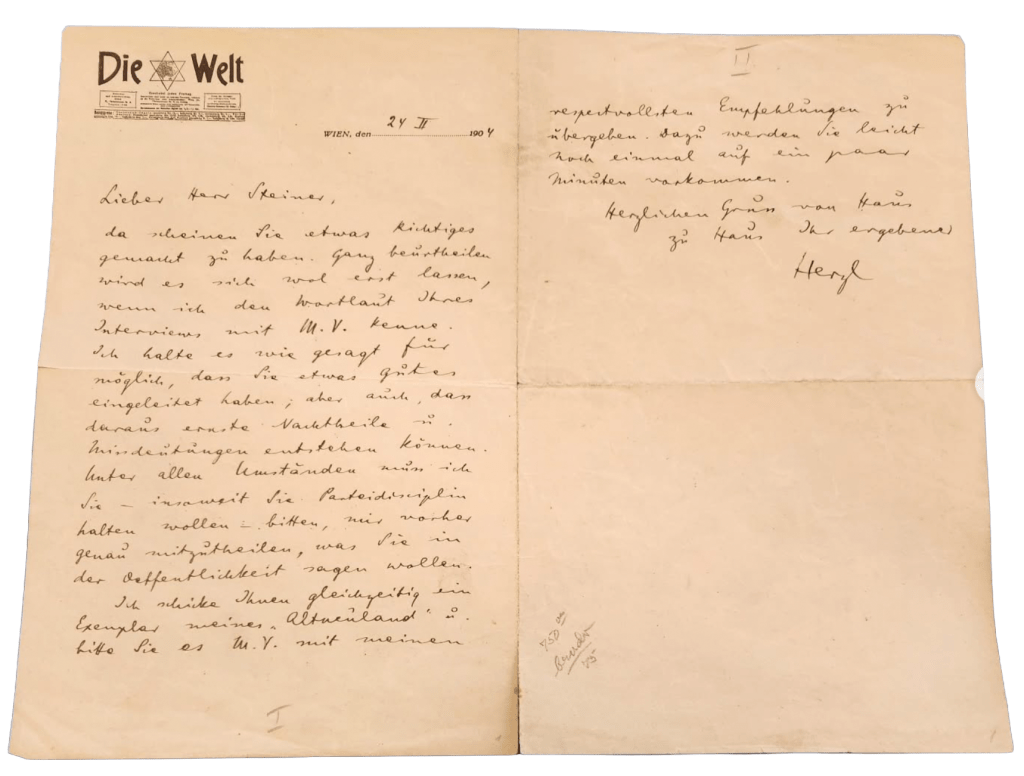 Die Welt
WIEN, den 24 II 1904
Lieber Herr Steiner,
da scheinen Sie etwas Richtiges
gemacht zu haben. Ganz beurtheilen
wird es sich wol erst lassen,
wenn ich den Wortlaut Ihres
Interviews mit M. V. kenne.
Ich halte es wie gesagt für
möglich, dass Sie etwas gutes
eingeleitet haben; aber auch, dass
daraus ernste Nachtheile u.
Missdeutungen entstehen können.
Unter allen Umständen muss ich
Sie – insoweit Sie Parteidisciplin
halten wollen – bitten, mir vorher
genau mitzutheilen, was Sie in
der Oeffentlichkeit sagen wollen.
Ich schicke Ihnen gleichzeitig ein
Exemplar meines „Altneuland" u.
bitte Sie es M. V. mit meinen
I
II
respectvollsten Empfehlungen zu
übergeben. Dazu werden Sie leicht
noch einmal auf ein paar
Minuten vorkommen.
Herzlichen Gruss von Haus
zu Haus Ihr ergebener
Herzl